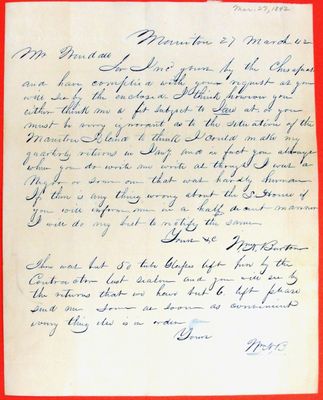 Mar. 27, 1842
Manitou 27 March 42
Mr. Wendall
Sir I recd yours by the Chesapeake
and have complied with your request as you
will see by the enclosed I think however you
either think me a fit subject to Jaw at or you
must be very ignorant as to the situation of the
Manitou Island to think I could make my
quarterly returns in Jany and in fact you always
when you do write me write as though I was a
or some one that was hardly human
If there is any thing wrong about the L House if
you will inform me in a half decent manner
I will do my best to notify the same
Yours &c
Wm N. Burton
There was but 50 tube Glasses left here by the
Contractor last season and you will see by
the returns that we have but 6 left please
send me some as soon as convenient
every thing else is in order
Yours
W. N. B.